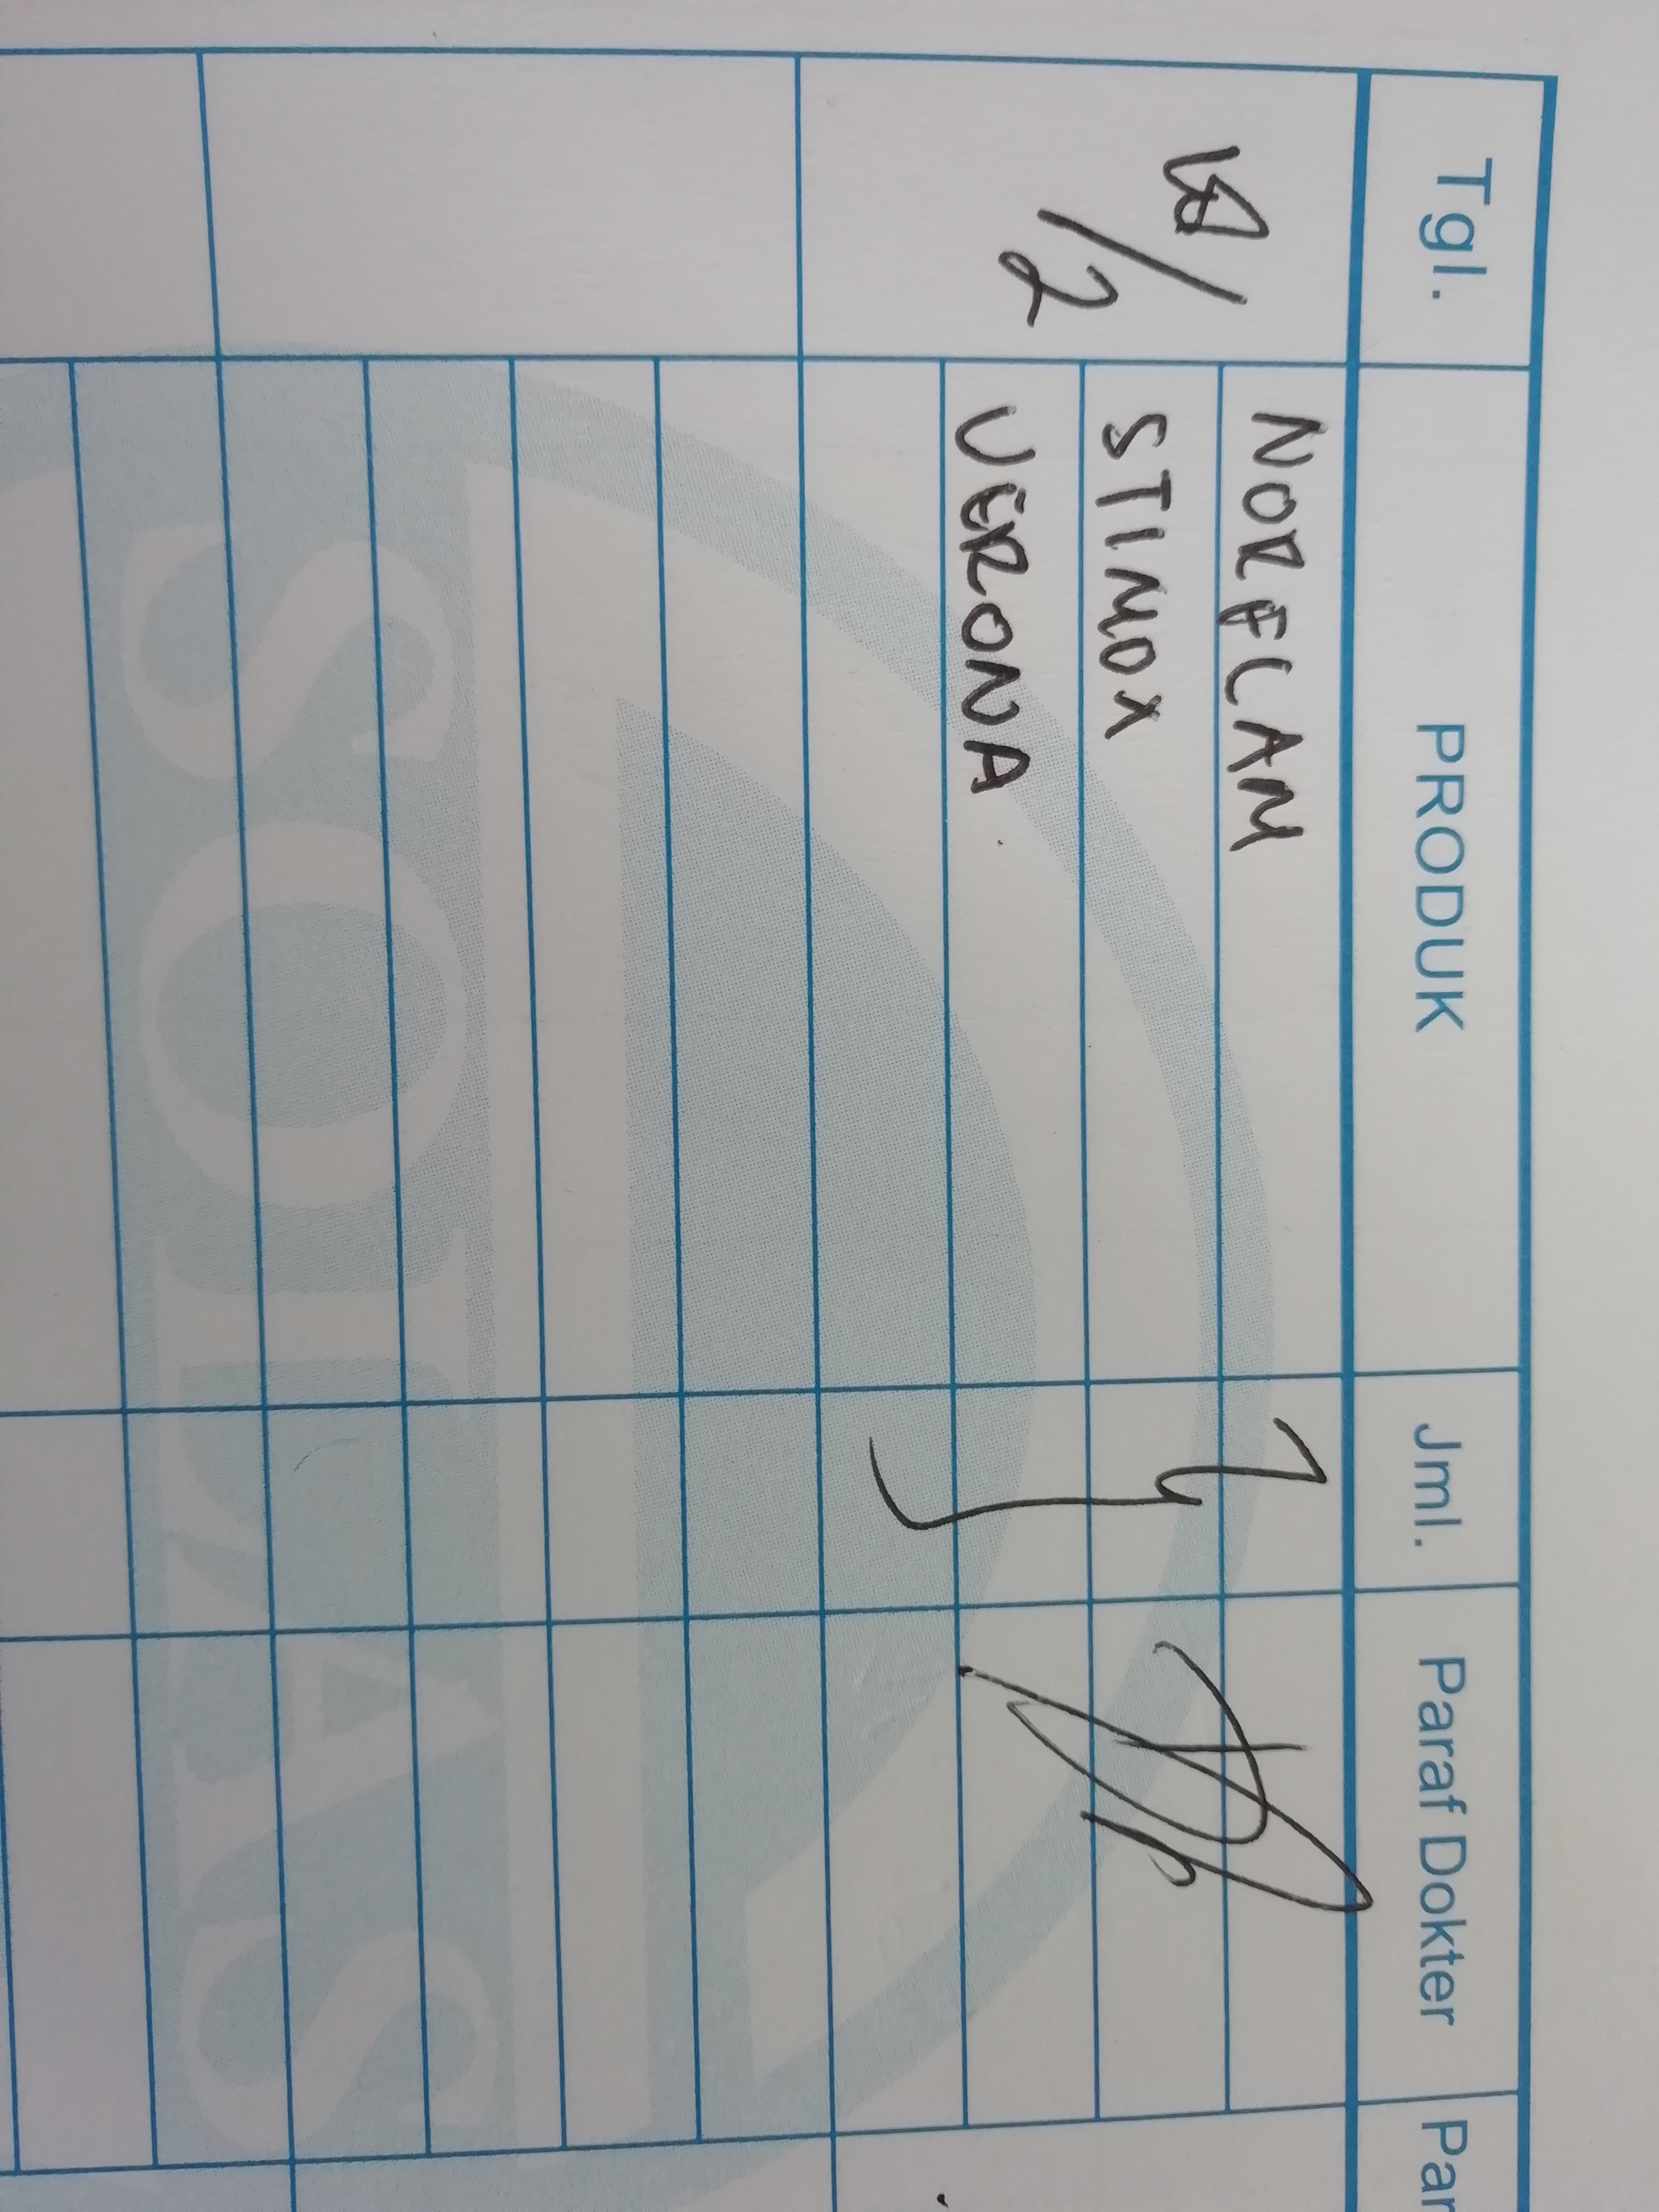 Tgl. PRODUK Jml. Paraf Dokter
NORFLAM
/2
STIMOX
VERONA
SOLAS